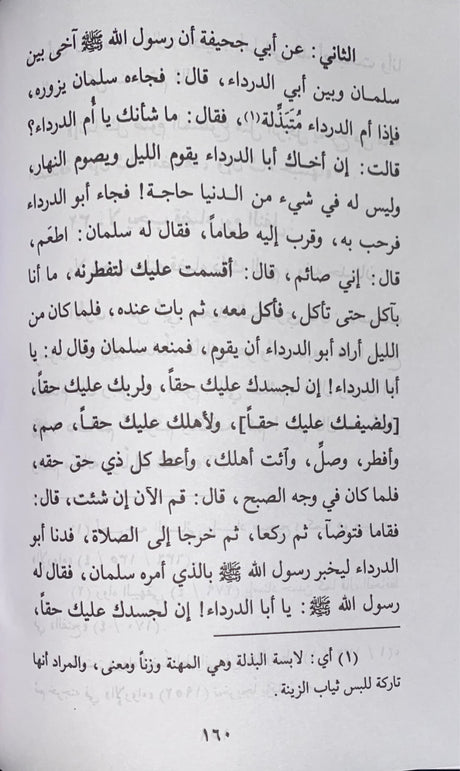 الثاني: عن أبي جحيفة أن رسول الله ﷺ آخى بين
سلمـان وبين أبي الدرداء، قال: فجاءه سلمان يزوره،
فإذا أم الدرداء مُتَبَذِّلة(١)، فقال: ما شأنك يا أُم الدرداء؟
قالت: إن أخـاك أبا الدرداء يقوم الليل ويصوم النهار،
وليس له في شيء من الـدنيا حاجـة! فجاء أبو الدرداء
فرحب به، وقرب إليه طعامـاً، فقال له سلمان: اطعَم،
قال: إني صائم، قال: أقسمت عليك لتفطرنه، ما أنا
بآكل حتى تأكل، فأكل معه، ثم بات عنده، فلما كان من
الليل أراد أبو الدرداء أن يقوم، فمنعه سلمان وقال له: يا
أبا الدرداء! إن لجسدك عليك حقاً، ولربك عليك حقاً،
[ولضيفـك عليك حقـاً]، ولأهلك عليك حقـاً، صم،
وأفطر، وصلِّ، وآئت أهلك، وأعط كل ذي حق حقه،
فلما كان في وجه الصبح، قال: قم الآن إن شئت، قال:
فقاما فتوضآ، ثم ركعا، ثم خرجا إلى الصلاة، فدنا أبو
الدرداء ليخبر رسول الله ﷺ بالذي أمره سلمان، فقال له
رسول الله ﷺ: يا أبا الدرداء! إن لجسدك عليك حقاً،
(١) أي: لابسة البذلة وهي المهنة وزناً ومعنى، والمراد أنها
تاركة للبس ثياب الزينة.
١٦٠